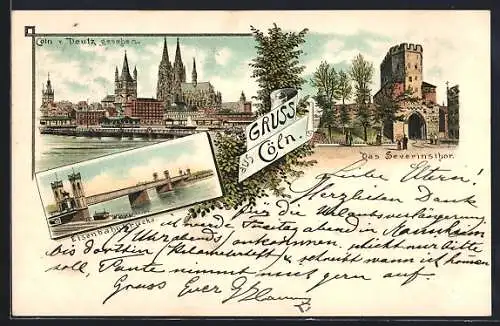 Cöln v. Deutz gesehen.
GRUSS
aus
Cöln.
Das Severinsthor.
Eisenbahnbrücke
Liebe Eltern!
Herzlichen Dank
für die Urlaubsverlängerung
ich werde Freitag abend in Mannheim
Uhr abends ankommen. schickt mir bitte
bis dorthin & schreibt wann ich kommen
soll, Tante nimmt mich gern auf.
Gruss Euer